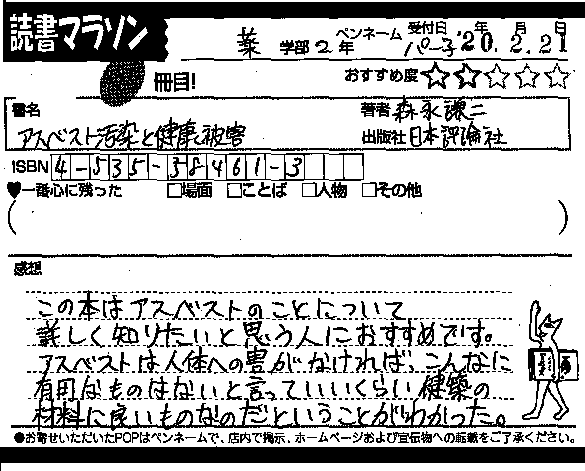 読書マラソン
薬 学部 2 年 ペンネーム パー子 受付日 '20年 2月 21日
冊目! おすすめ度 ☆☆☆☆☆
書名 著者 森永謙二
アスベスト汚染と健康被害 出版社 日本評論社
ISBN 4-535-98461-3
♥一番心に残った □場面 □ことば □人物 □その他
( )
感想
この本はアスベストのことについて
詳しく知りたいと思う人におすすめです。
アスベストは人体への害がなければ、こんなに
有用なものはないと言っていいくらい健築の
材料に良いものなのだということがわかった。
●お寄せいただいたPOPはペンネームで、店内で掲示、ホームページおよび宣伝物への転載をご了承ください。